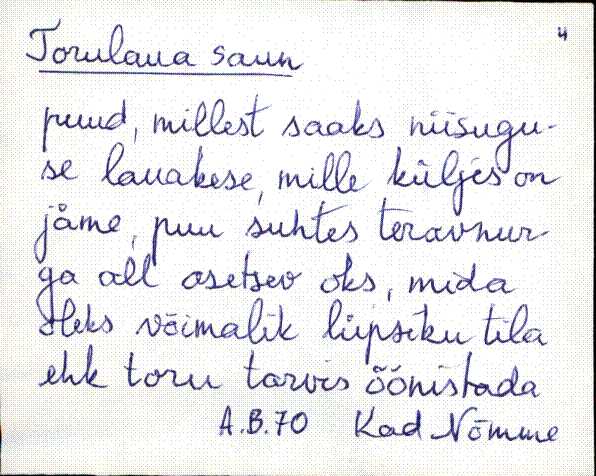 4
Torulaua saun
puud, millest saaks niisugu-
se lauakese, mille küljes on
jäme, puu suhtes teravnur-
ga all asetsev oks, mida
oleks võimalik lüpsiku tila
ehk toru tarvis õõnistada
A.B.70 Kad Nõmme